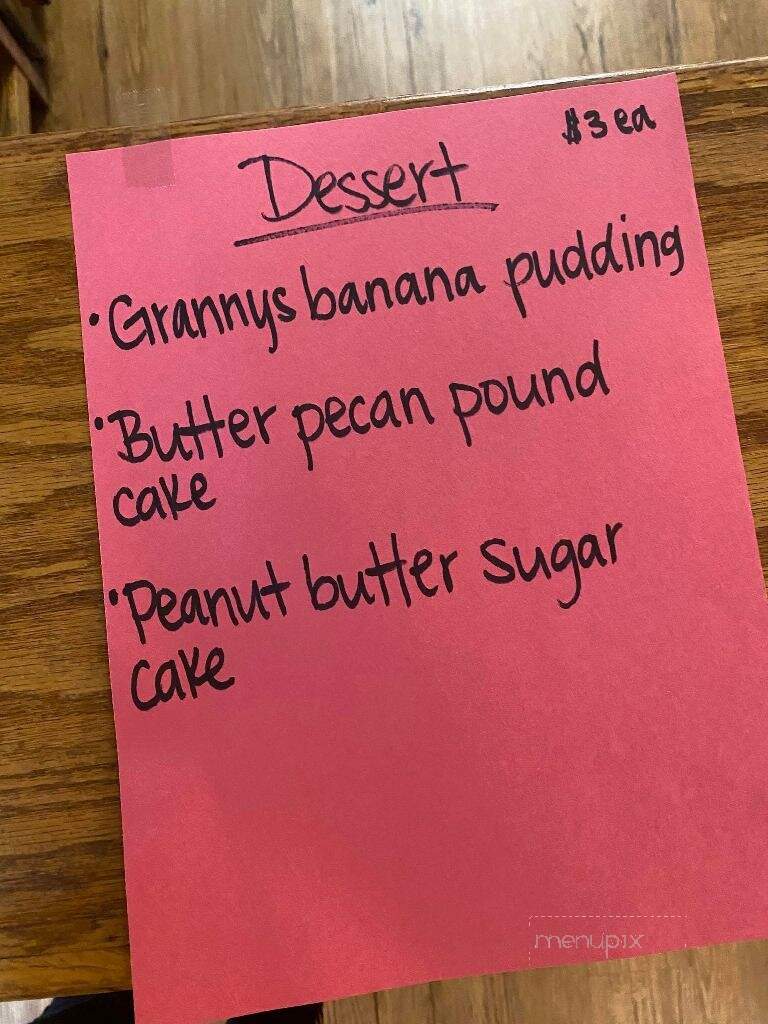 $3 ea
Dessert
• Grannys banana pudding
• Butter pecan pound
cake
• Peanut butter sugar
cake
menupix